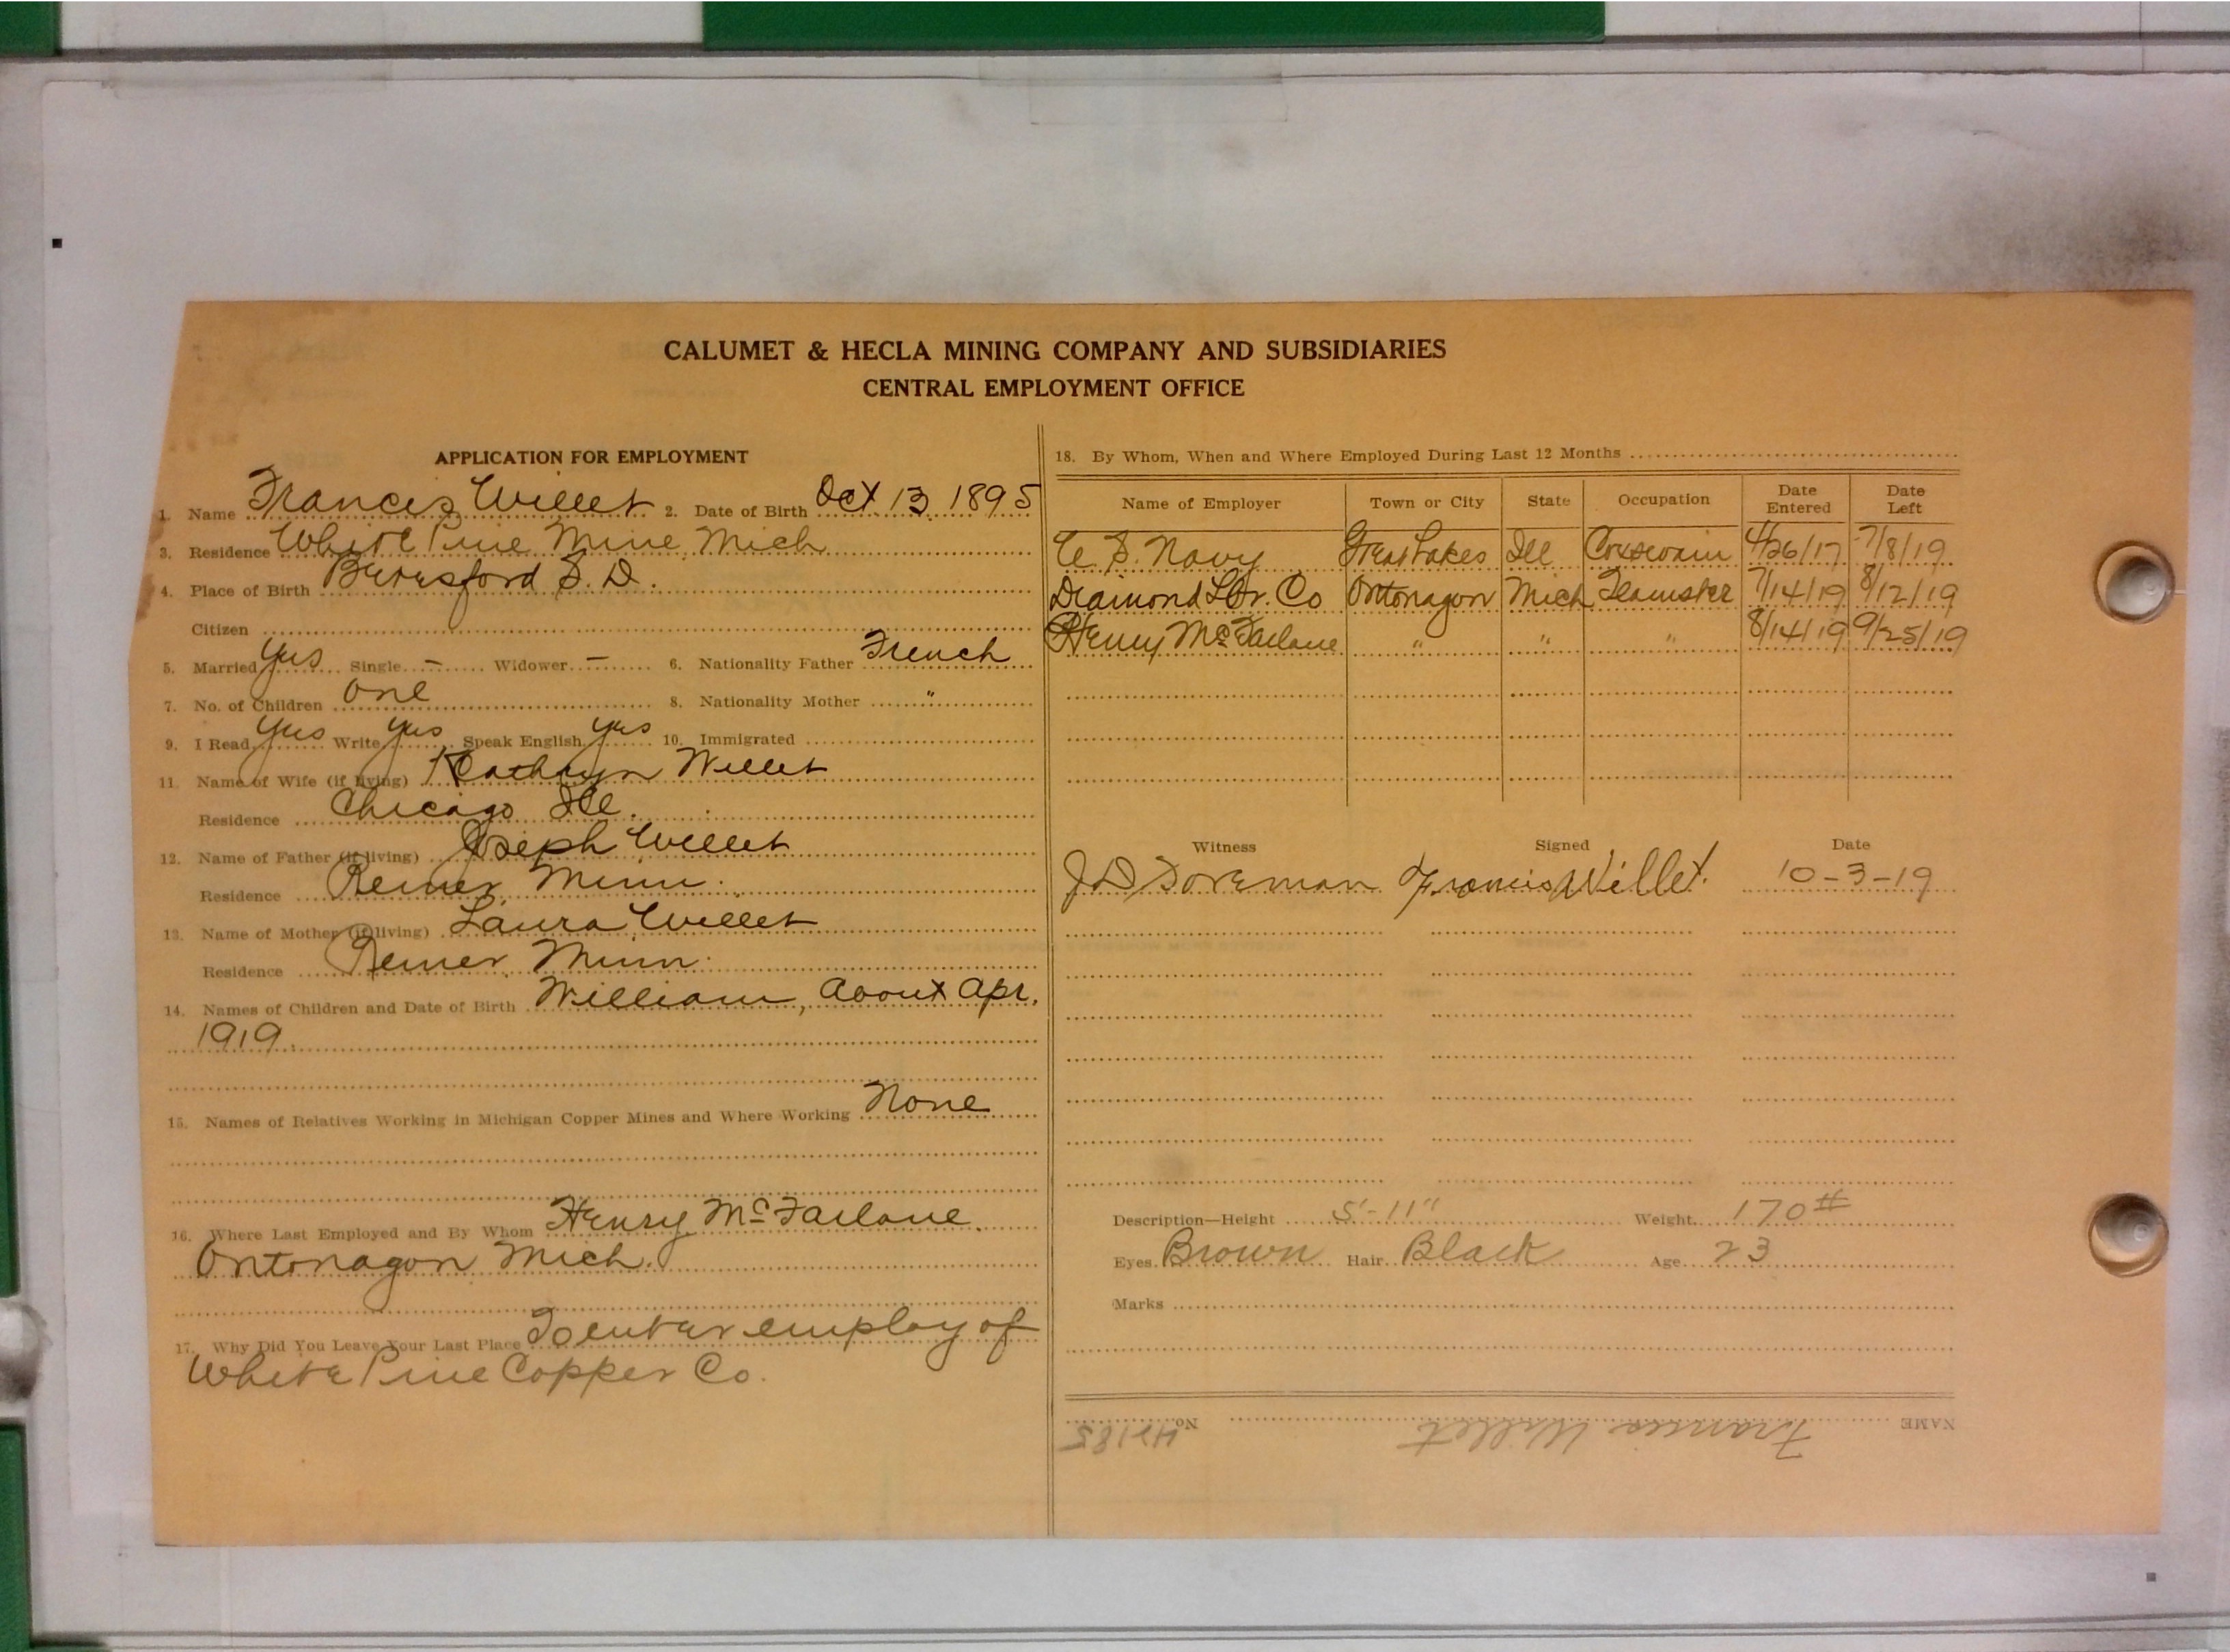 CALUMET & HECLA MINING COMPANY AND SUBSIDIARIES
CENTRAL EMPLOYMENT OFFICE
APPLICATION FOR EMPLOYMENT
1. Name Francis Willet 2. Date of Birth Oct 13 1895
3. Residence White Pine Mine Mich
4. Place of Birth Beresford S. D.
Citizen
5. Married Yes Single – Widower – 6. Nationality Father French
7. No. of Children One 8. Nationality Mother "
9. I Read Yes Write Yes Speak English Yes 10. Immigrated
11. Name of Wife (if living) Kathryn Willet
Residence Chicago Ill.
12. Name of Father (if living) Joseph Willet
Residence Remer Minn.
13. Name of Mother (if living) Laura Willet
Residence Remer Minn.
14. Names of Children and Date of Birth William, About Apr.
1919.
15. Names of Relatives Working in Michigan Copper Mines and Where Working None
16. Where Last Employed and By Whom Henry McFarlane
Ontonagon Mich.
17. Why Did You Leave Your Last Place To enter employ of
White Pine Copper Co.
18. By Whom, When and Where Employed During Last 12 Months
Name of Employer Town or City State Occupation Date Entered Date Left
U. S. Navy Great Lakes Ill Coxswain 4/26/17 7/8/19
Diamond Lbr. Co Ontonagon Mich Teamster 7/14/19 8/12/19
Henry McFarlane " " " 8/14/19 9/25/19
Witness Signed Date
J D Foreman Francis Willet. 10-3-19
Description—Height 5'-11" Weight 170#
Eyes Brown Hair Black Age 23
Marks
NAME Francis Willet No.